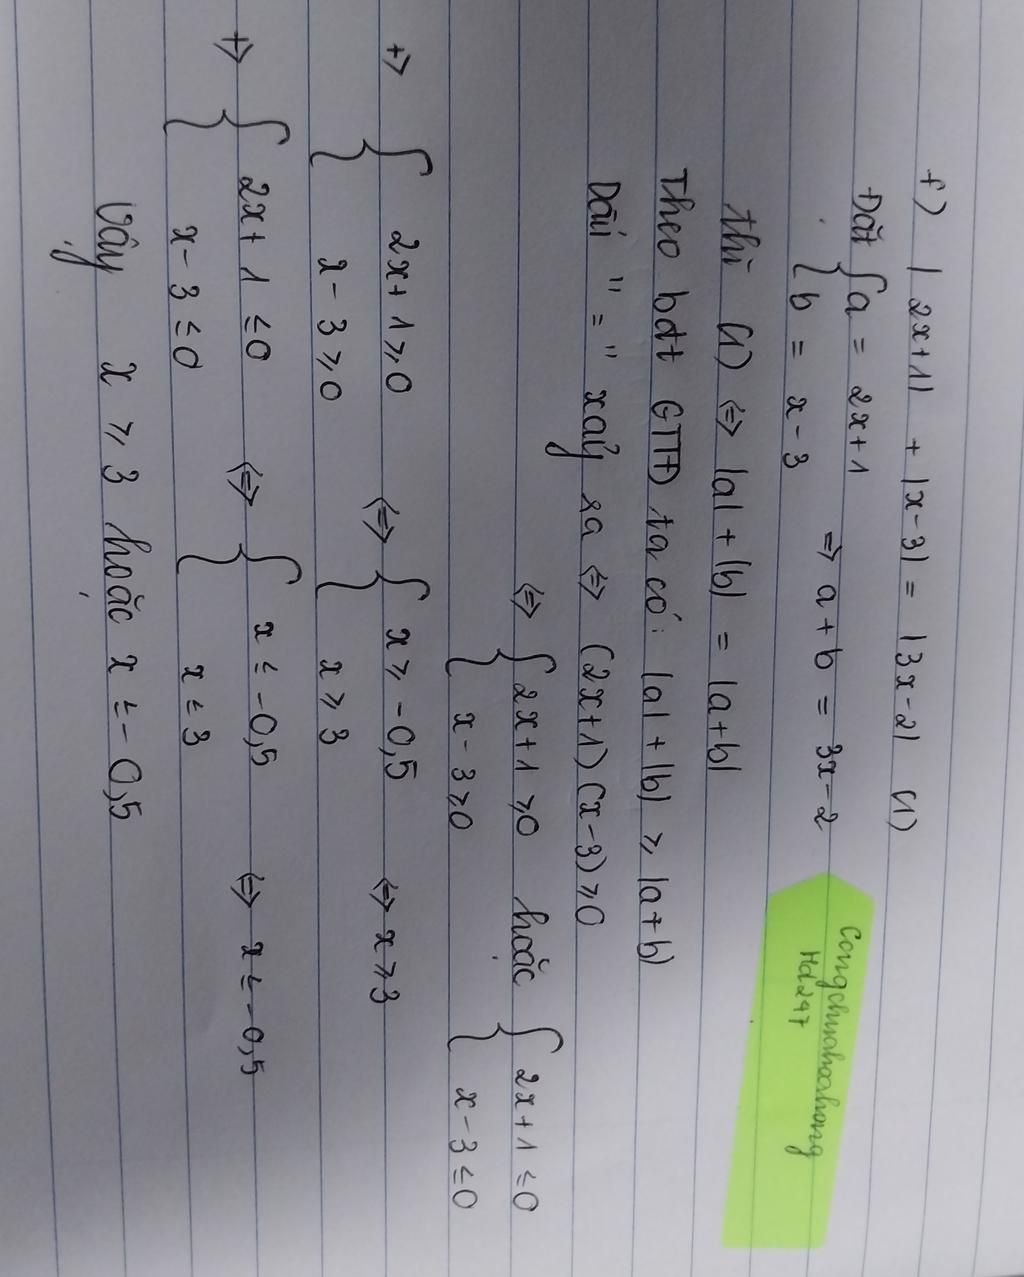 f) |2x+1| + |x-3| = |3x-2| (1)
Đặt { a = 2x+1
b = x-3 => a+b = 3x-2
thì (1) <=> |a| + |b| = |a+b|
Theo bđt GTTĐ ta có: |a| + |b| ≥ |a+b|
Dấu "=" xảy ra <=> (2x+1)(x-3) ≥ 0
<=> { 2x+1 ≥ 0 hoặc { 2x+1 ≤ 0
x-3 ≥ 0 x-3 ≤ 0
+> { 2x+1 ≥ 0 <=> { x ≥ -0,5 <=> x ≥ 3
x-3 ≥ 0 x ≥ 3
+> { 2x+1 ≤ 0 <=> { x ≤ -0,5 <=> x ≤ -0,5
x-3 ≤ 0 x ≤ 3
Vậy x ≥ 3 hoặc x ≤ -0,5
Congchuahoahong
Hd247